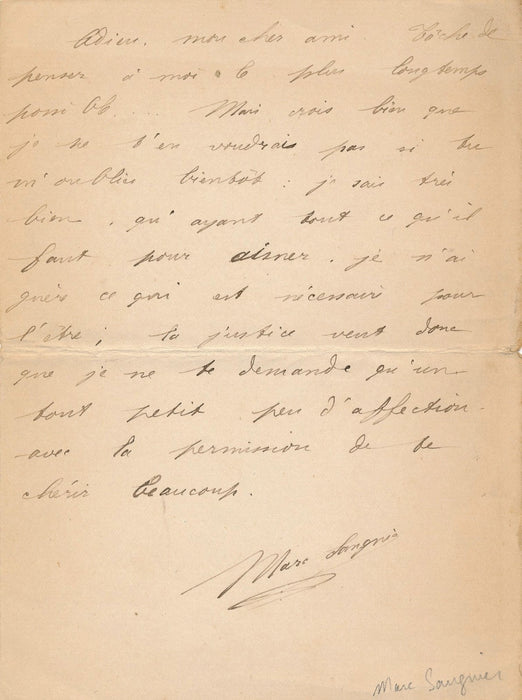 Adieu, mon cher ami Tâche de
penser à moi le plus longtemps
possible.... Mais crois bien que
je ne t'en voudrais pas si tu
m'oublies bientôt : je sais très
bien, qu'ayant tout ce qu'il
faut pour aimer, je n'ai
guère ce qui est nécessaire pour
l'être ; la justice veut donc
que je ne te demande qu'un
tout petit peu d'affection
avec la permission de te
chérir beaucoup.
Marc Sangnier
Marc Sangnier